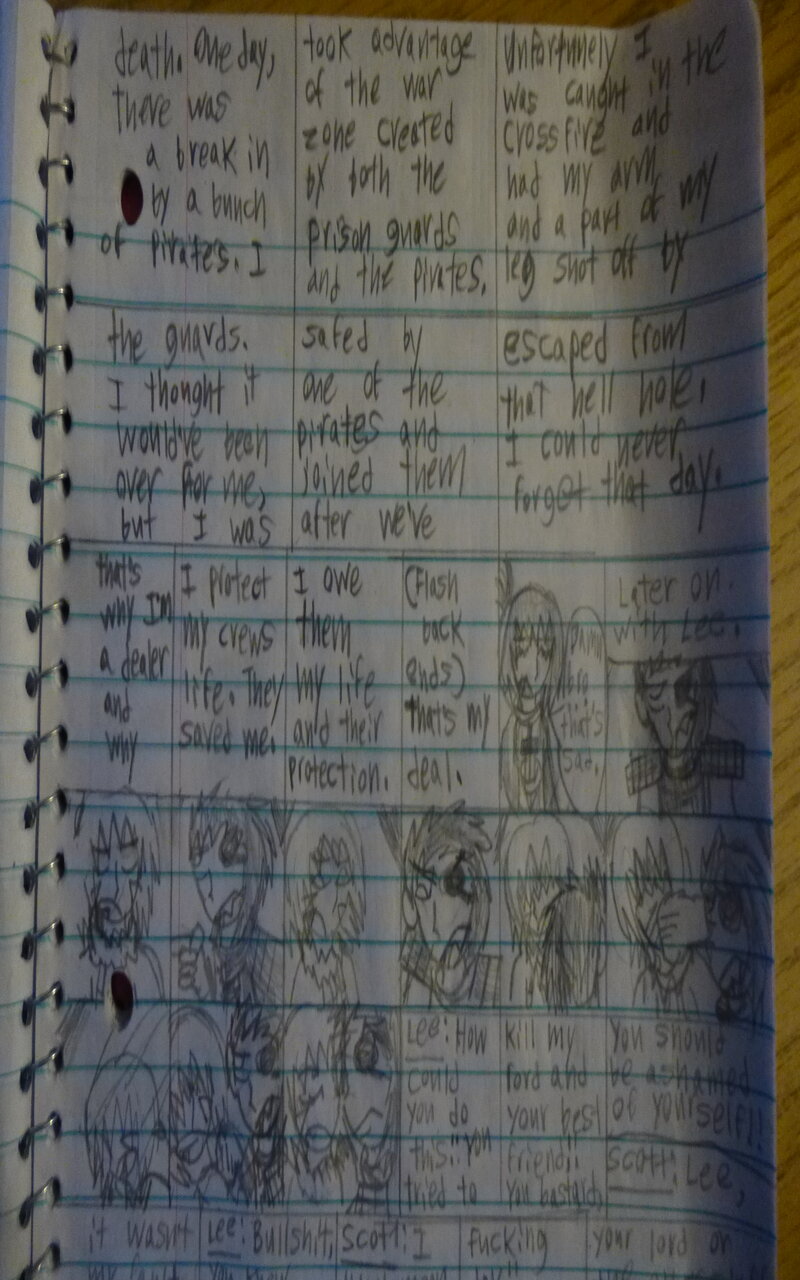 death. One day,
there was
a break in
by a bunch
of pirates. I
took advantage
of the war
zone created
by both the
prison guards
and the pirates.
Unfortunely I
was caught in the
crossfire and
had my arm
and a part of my
leg shot off by
the guards.
I thought it
would've been
over for me,
but I was
safed by
one of the
pirates and
joined them
after we've
escaped from
that hell hole.
I could never
forget that day.
that's
why I'm
a dealer
and
why
I protect
my crews
life. They
saved me.
I owe
them
my life
and their
protection.
(Flash
back
ends)
that's my
deal.
Damn
bro
that's
sad.
Later on.
with Lee.
Lee: How
could
you do
this!! you
tried to
kill my
lord and
your best
friend!!
You bastard,
You should
be ashamed
of yourself!!
Scott: Lee,
it wasn't
Lee: Bullshit,
Scott: I
fucking
your lord on